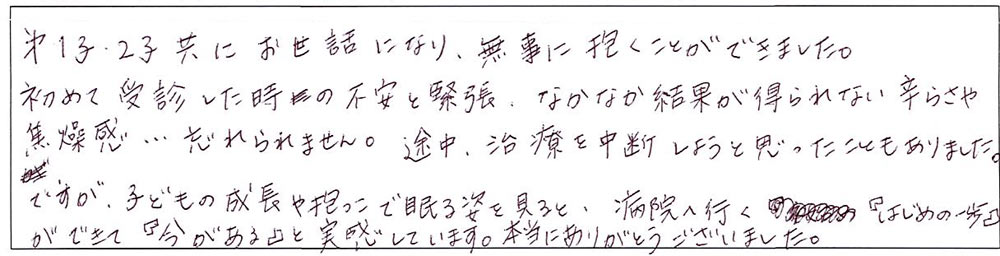 第1子・2子共にお世話になり、無事に抱くことができました。
初めて受診した時の不安と緊張、なかなか結果が得られない辛さや
焦燥感…忘れられません。途中、治療を中断しようと思ったこともありました。
ですが、子どもの成長や抱っこで眠る姿を見ると、病院へ行く『はじめの一歩』
ができて『今がある』と実感しています。本当にありがとうございました。